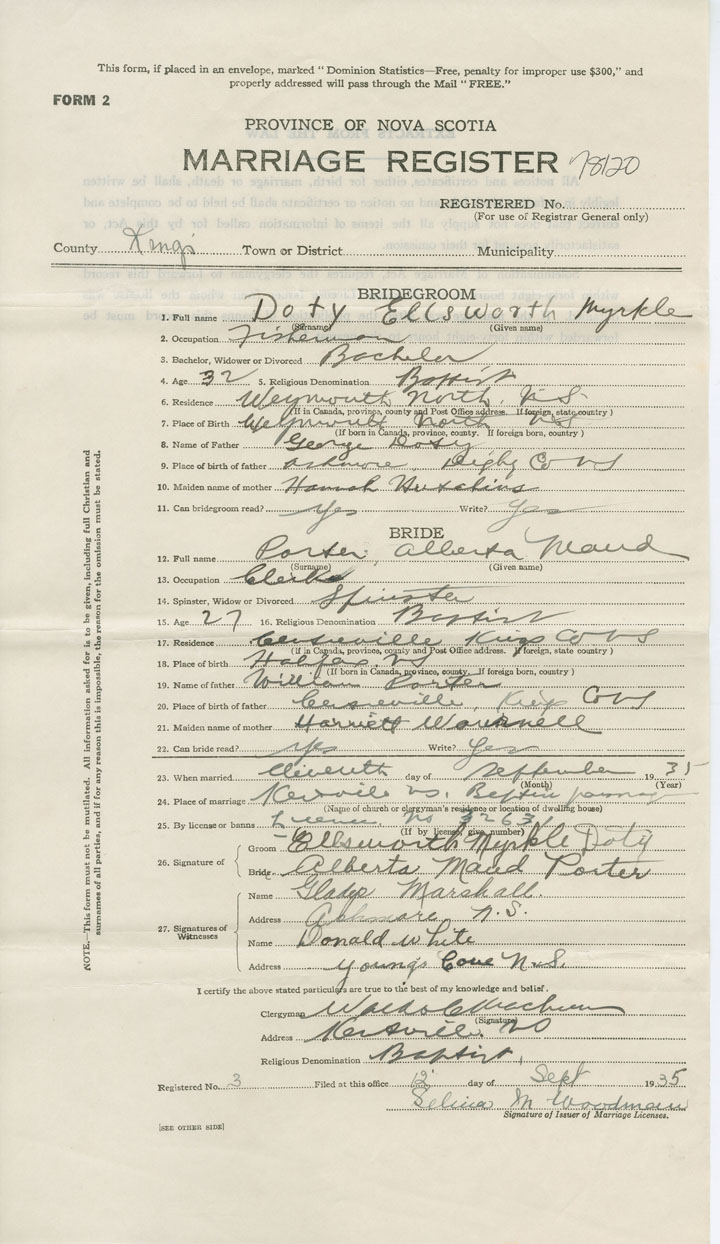 This form, if placed in an envelope, marked "Dominion Statistics—Free, penalty for improper use $300," and
properly addressed will pass through the Mail "FREE."
FORM 2
PROVINCE OF NOVA SCOTIA
MARRIAGE REGISTER 78120
REGISTERED No.
(For use of Registrar General only)
County Kings Town or District Municipality
BRIDEGROOM
1. Full name Doty Ellsworth Myrkle
(Surname) (Given name)
2. Occupation Fisherman
3. Bachelor, Widower or Divorced Bachelor
4. Age 32 5. Religious Denomination Baptist
6. Residence Weymouth North, N.S.
(If in Canada, province, county and Post Office address. If foreign, state country)
7. Place of Birth Weymouth North NS
(If born in Canada, province, county. If foreign born, country)
8. Name of Father George Doty
9. Place of birth of father Ashmore, Digby Co NS
10. Maiden name of mother Hannah Hutchins
11. Can bridegroom read? Yes Write? Yes
BRIDE
12. Full name Porter, Alberta Maud
(Surname) (Given name)
13. Occupation Clerk
14. Spinster, Widow or Divorced Spinster
15. Age 27 16. Religious Denomination Baptist
17. Residence Centreville Kings Co NS
(If in Canada, province, county and Post Office address. If foreign, state country)
18. Place of birth Halifax, NS
(If born in Canada, province, county. If foreign born, country)
19. Name of father William Porter
20. Place of birth of father Centreville, Kings Co NS
21. Maiden name of mother Harriett
22. Can bride read? Yes Write? Yes
23. When married Eleventh day of September 1935
(Month) (Year)
24. Place of marriage NS. Baptist
(Name of church or clergyman's residence or location of dwelling house)
25. By license or banns License No 3263
(If by license, give number)
26. Signature of
Groom Ellsworth Myrkle Doty
Bride Alberta Maud Porter
27. Signatures of Witnesses
Name Gladys Marshall.
Address Ashmore, N.S.
Name Donald White
Address Youngs Cove N.S.
I certify the above stated particulars are true to the best of my knowledge and belief.
Clergyman
(Signature)
Address NS
Religious Denomination Baptist,
Registered No. 3 Filed at this office 12 day of Sept 1935
Selina M Woodman
Signature of Issuer of Marriage Licenses.
[SEE OTHER SIDE]
NOTE.—This form must not be mutilated. All information asked for is to be given, including full Christian and
surnames of all parties, and if for any reason this is impossible, the reason for the omission must be stated.